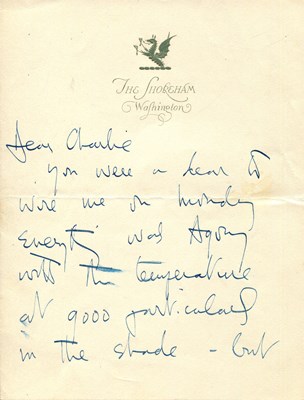 The Shoreham
Washington
Dear Charlie
you were a dear to
wire me on Monday
Everythi was Agony
with the temperature
at 9000 particularly
in the shade - but